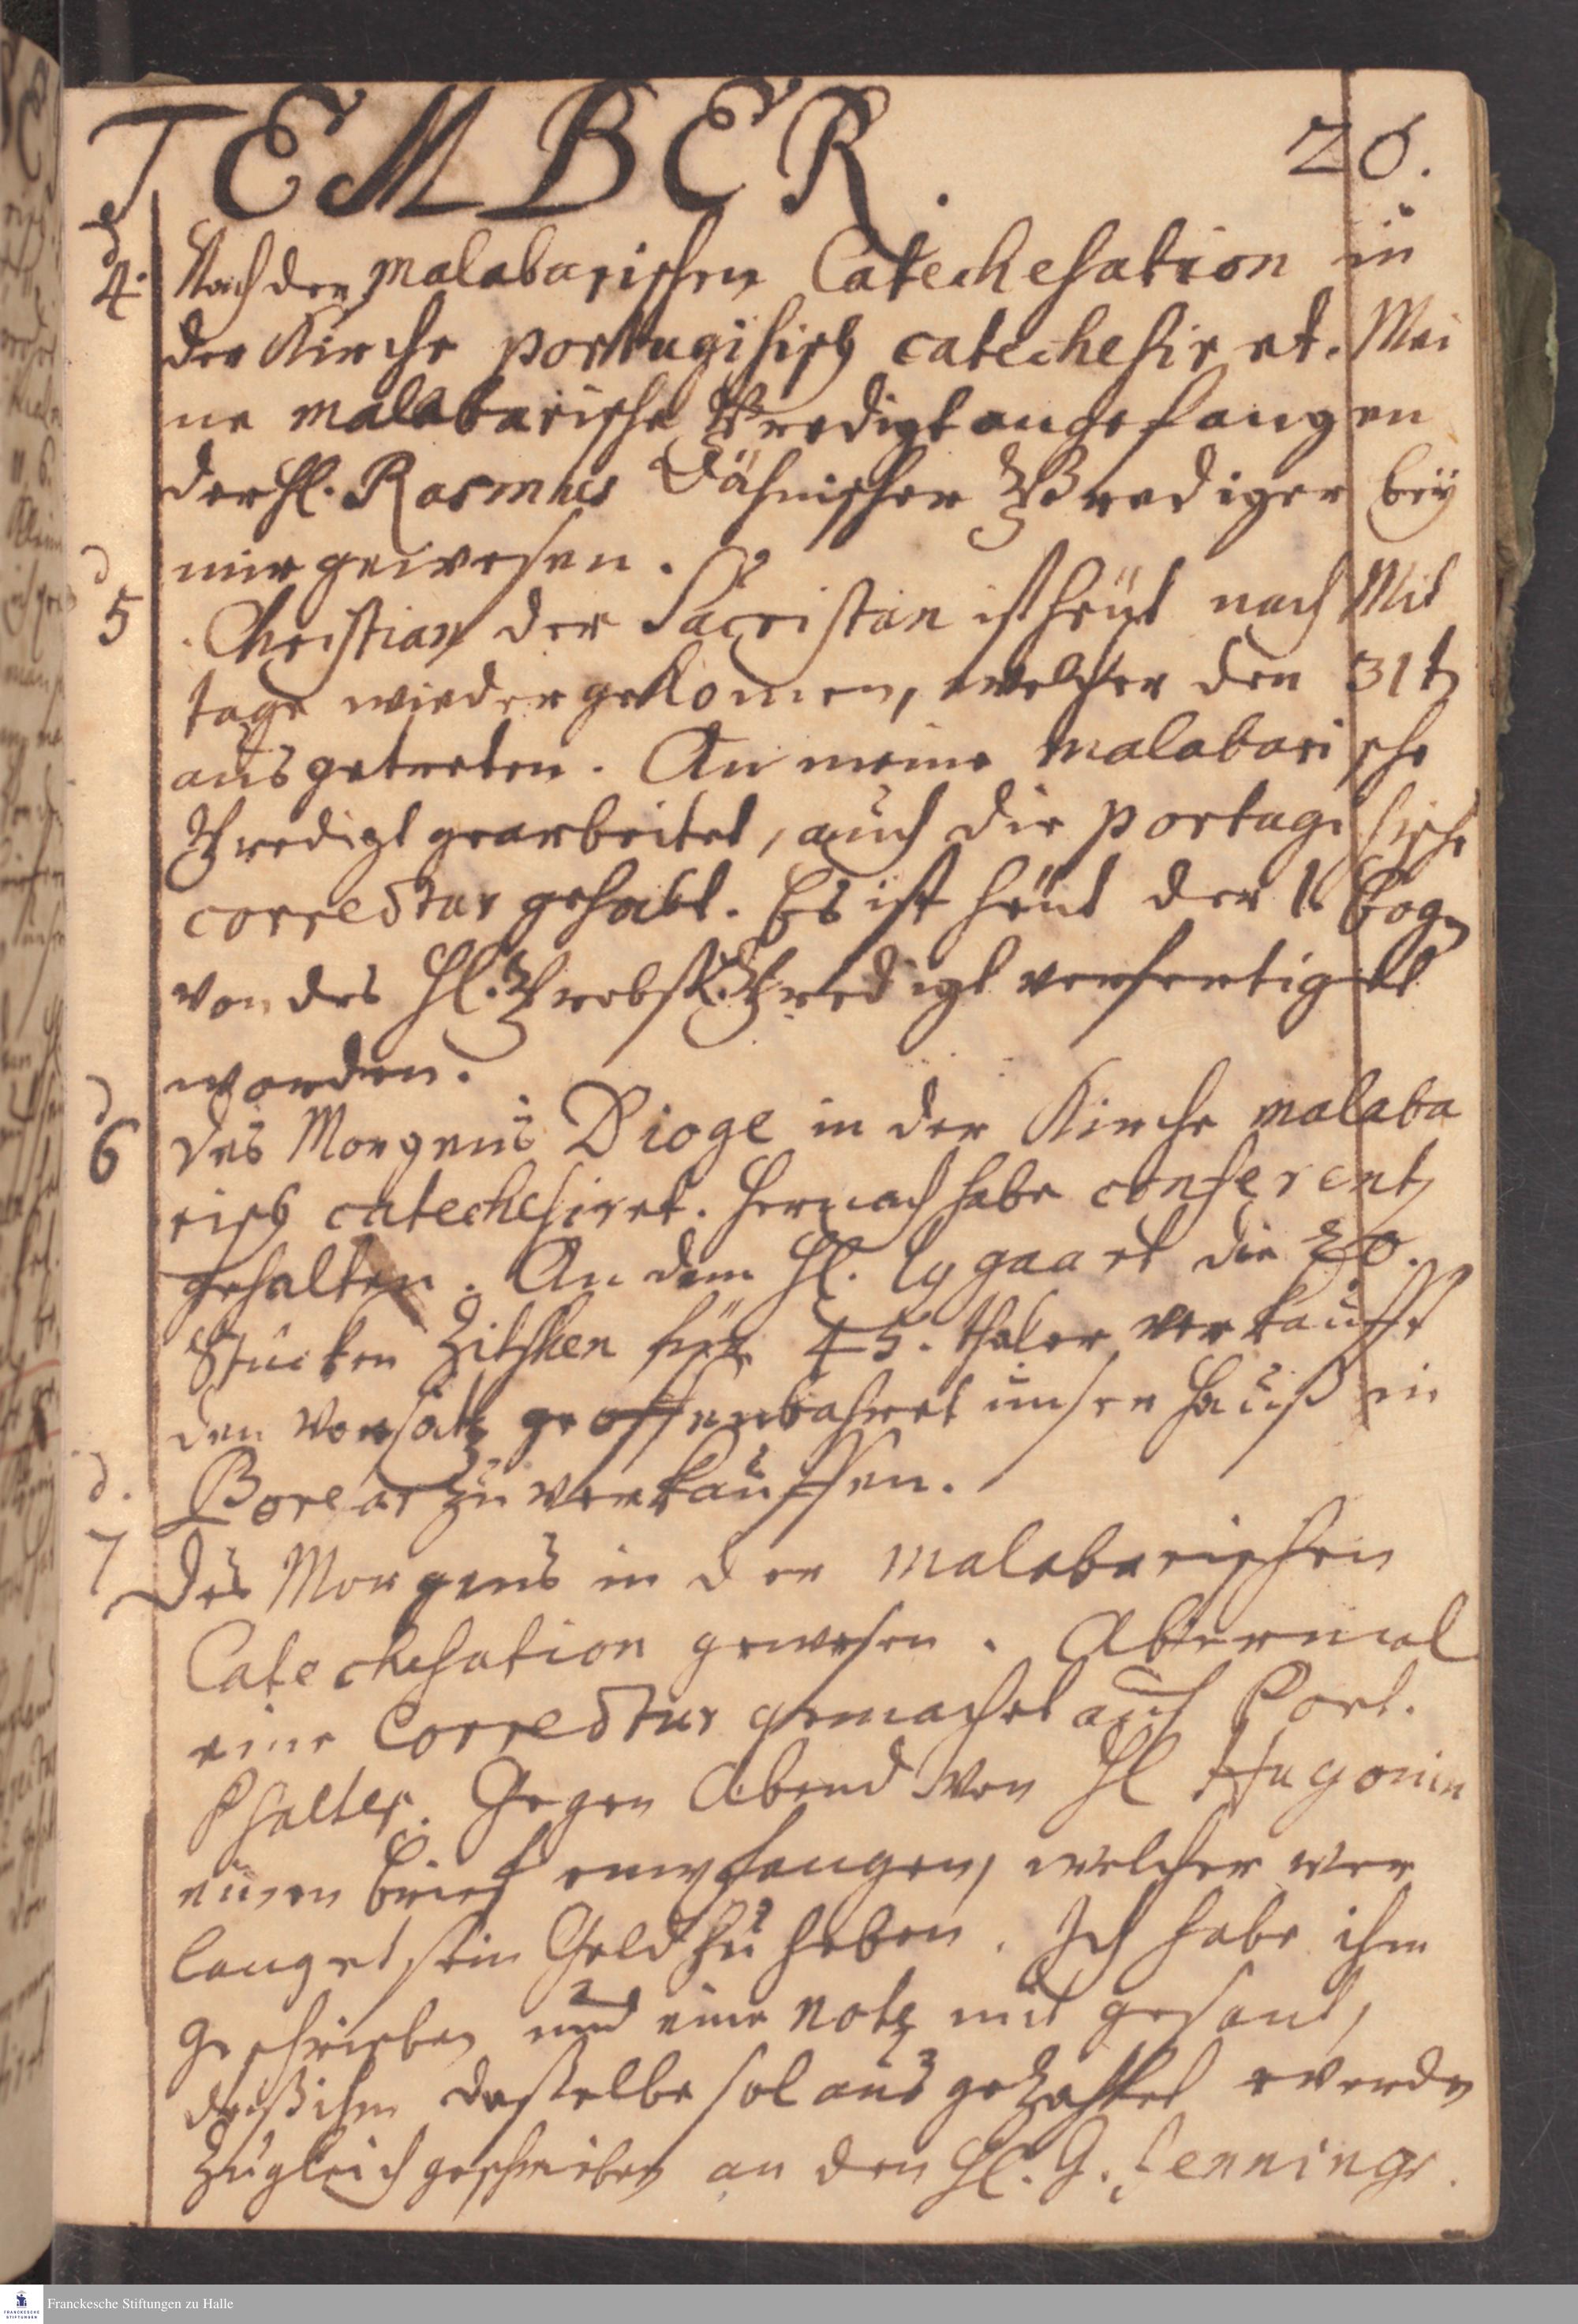 TEMBER. 26.
d
4. Nach der malabarischen Catechesation in
der Kirche portugisisch catechesiret. Mei
ne malabarische Predigt angefangen
der Hl. Rasmus Dähnischer Prediger beÿ
mir gewesen.
d
5 Christian der Sacristan ist heut nach Mit
tage wieder gekomen, welcher den 31t
ausgetretten. An meine malabarische
Predigt gearbeitet, auch die portugisische
correctur gehabt. Es ist heut der 1. Bogn
von des Hl. Probst Predigt verfertiget
worden.
d
6 des Morgens Dioge in der Kirche malaba
risch catechesiret. Hernach habe conferentz
gehalten. An dem Hl. Lygaart die 20.
Stücken Zitsken für 45. thaler verkaufft
den Vorsatz geoffenbahret unser Hauß in
Borear zu verkauffen.
d.
7 Des Morgens in der malabarischen
Catechesation gewesen. Abermal
eine Correctur gemachet auf Port.
Psalter. Gegen Abend von Hl Hugonin
einen brief empfangen, welcher ver
langet sein Geld zu heben. Ich habe ihm
geschrieben und eine note mit gesant,
daß ihm dasselbe sol aus gezahlet werden
Zugleich geschrieben an den Hl. G. Jennings.
Franckesche Stiftungen zu Halle